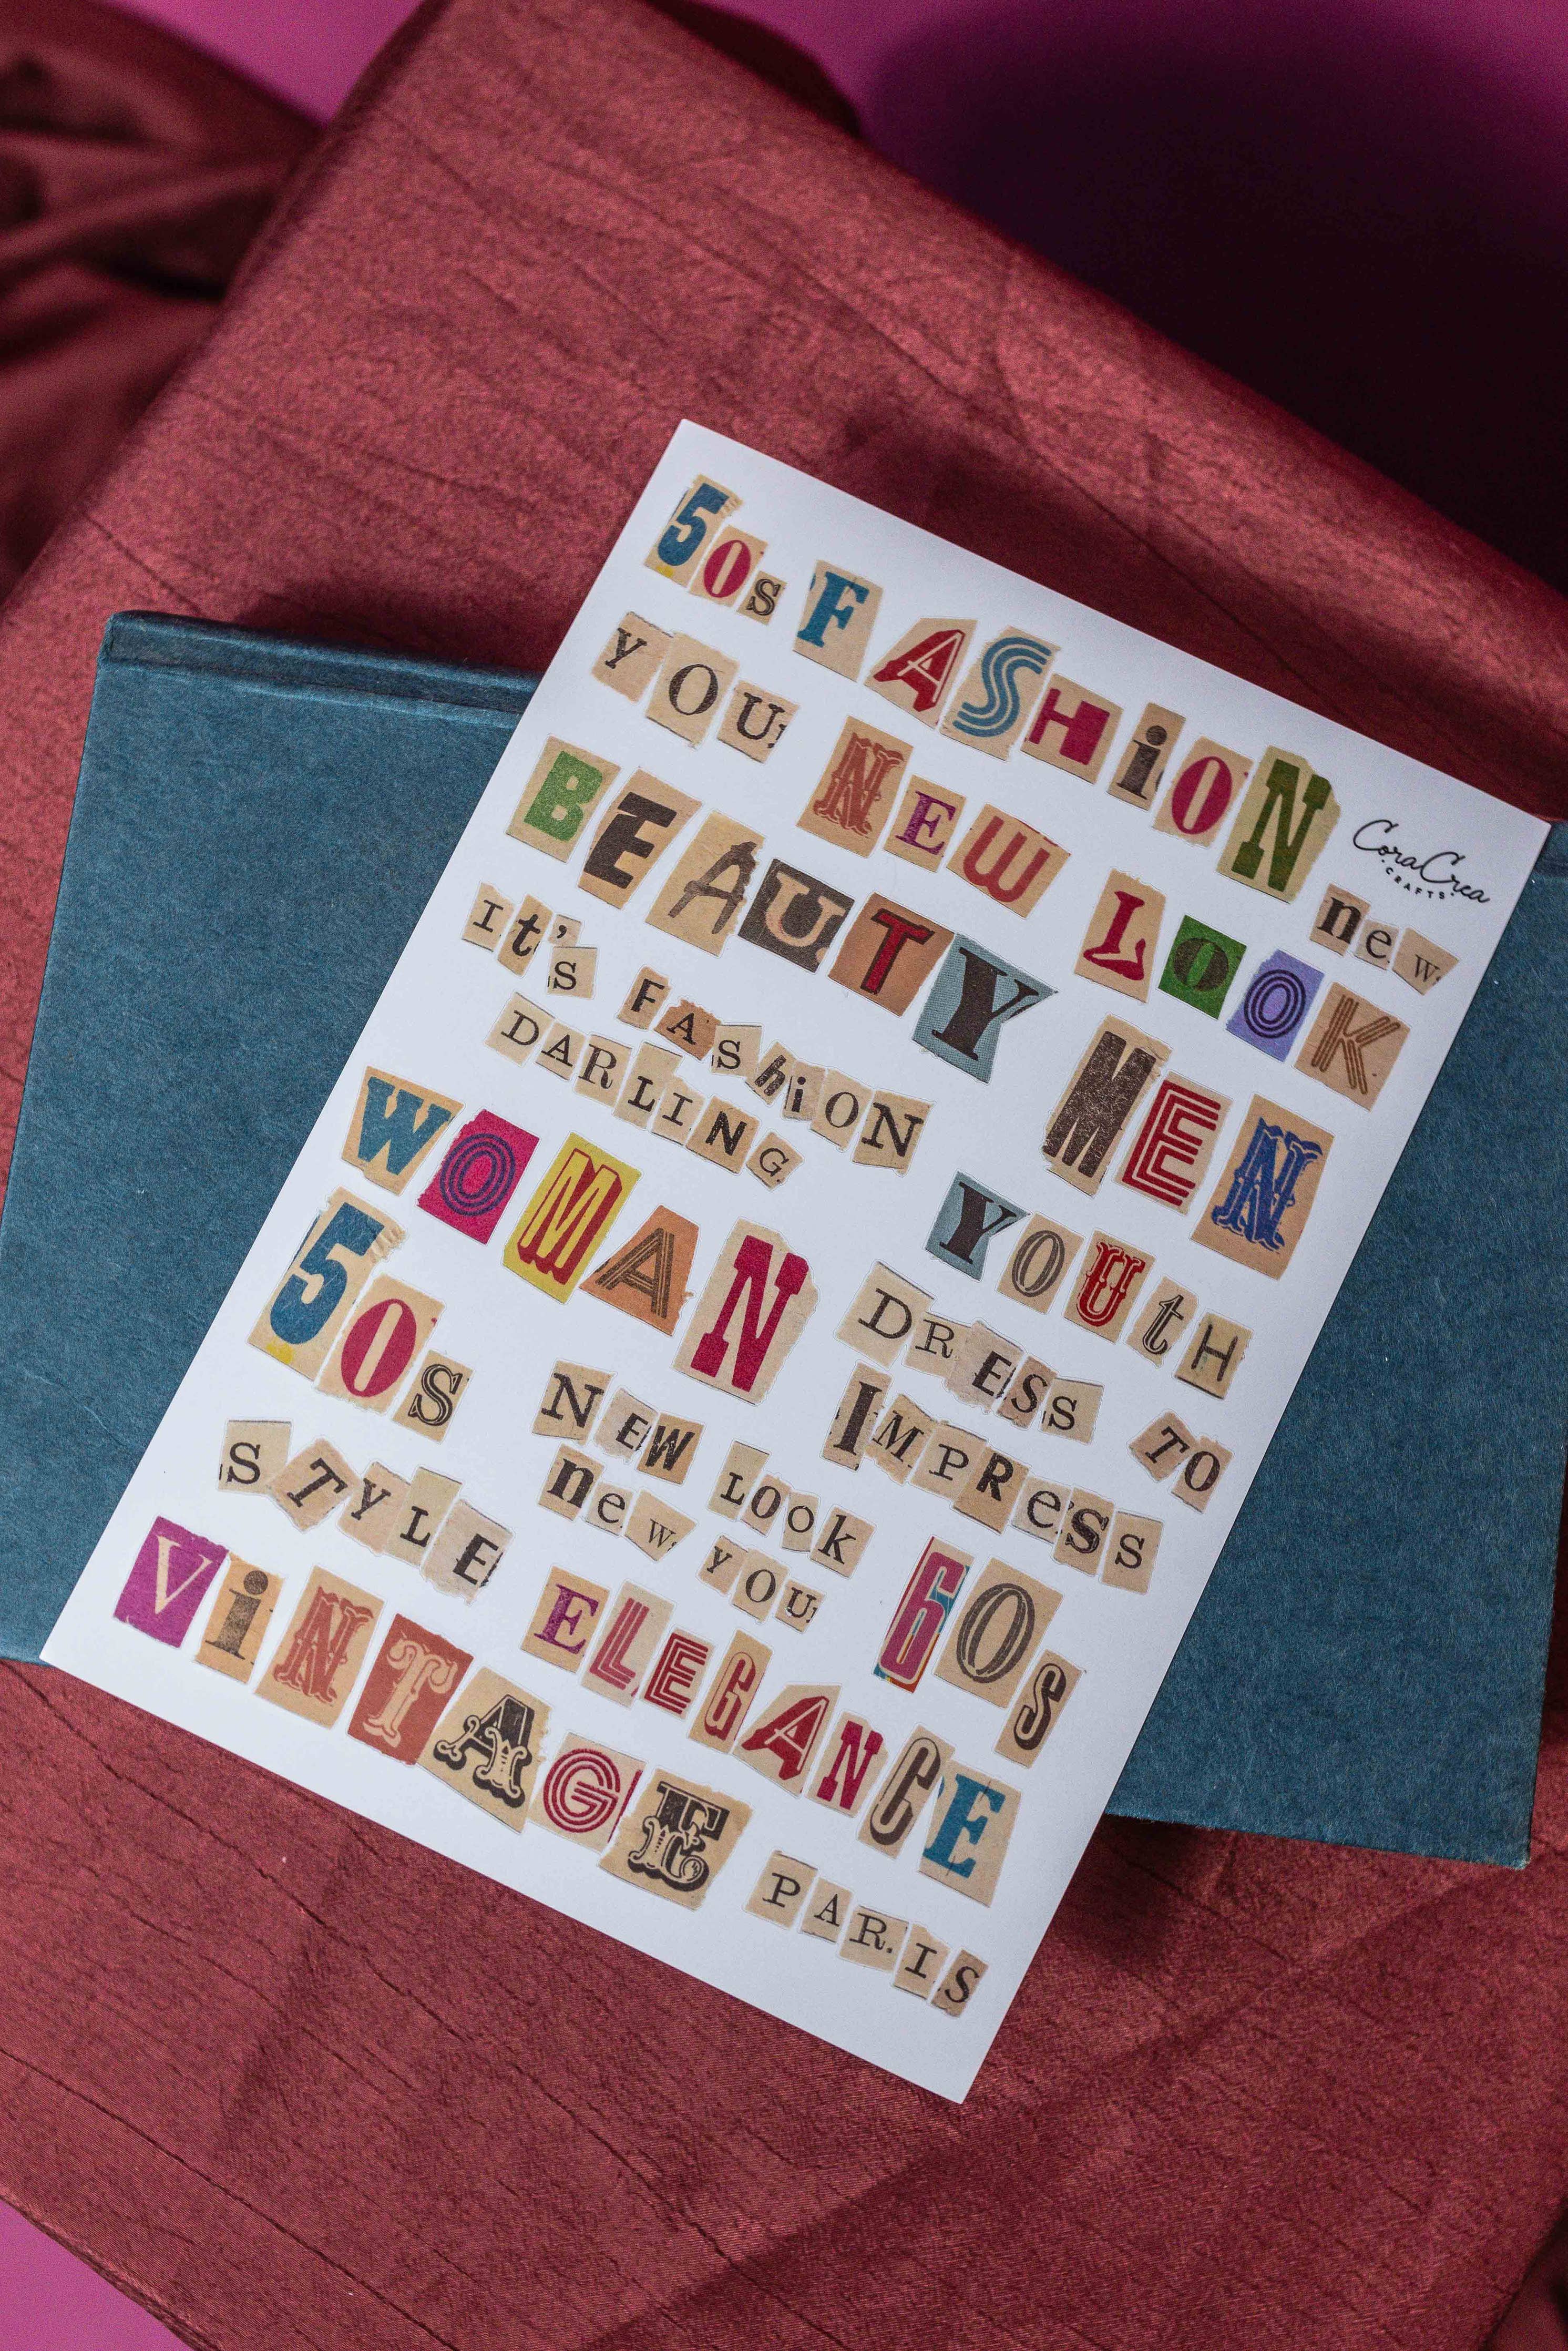 50s FASHiON
CoraCrea
CRAFTS
YOU NEW LOOK new
BEAUTY MEN
It's FAShiON
DARLING
WOMAN YOUtH
50s DRESS TO
IMPReSS
NEW LOOK
new YOU
STYLE 60s
ViNTAGE ELEGANCE
PAR.IS